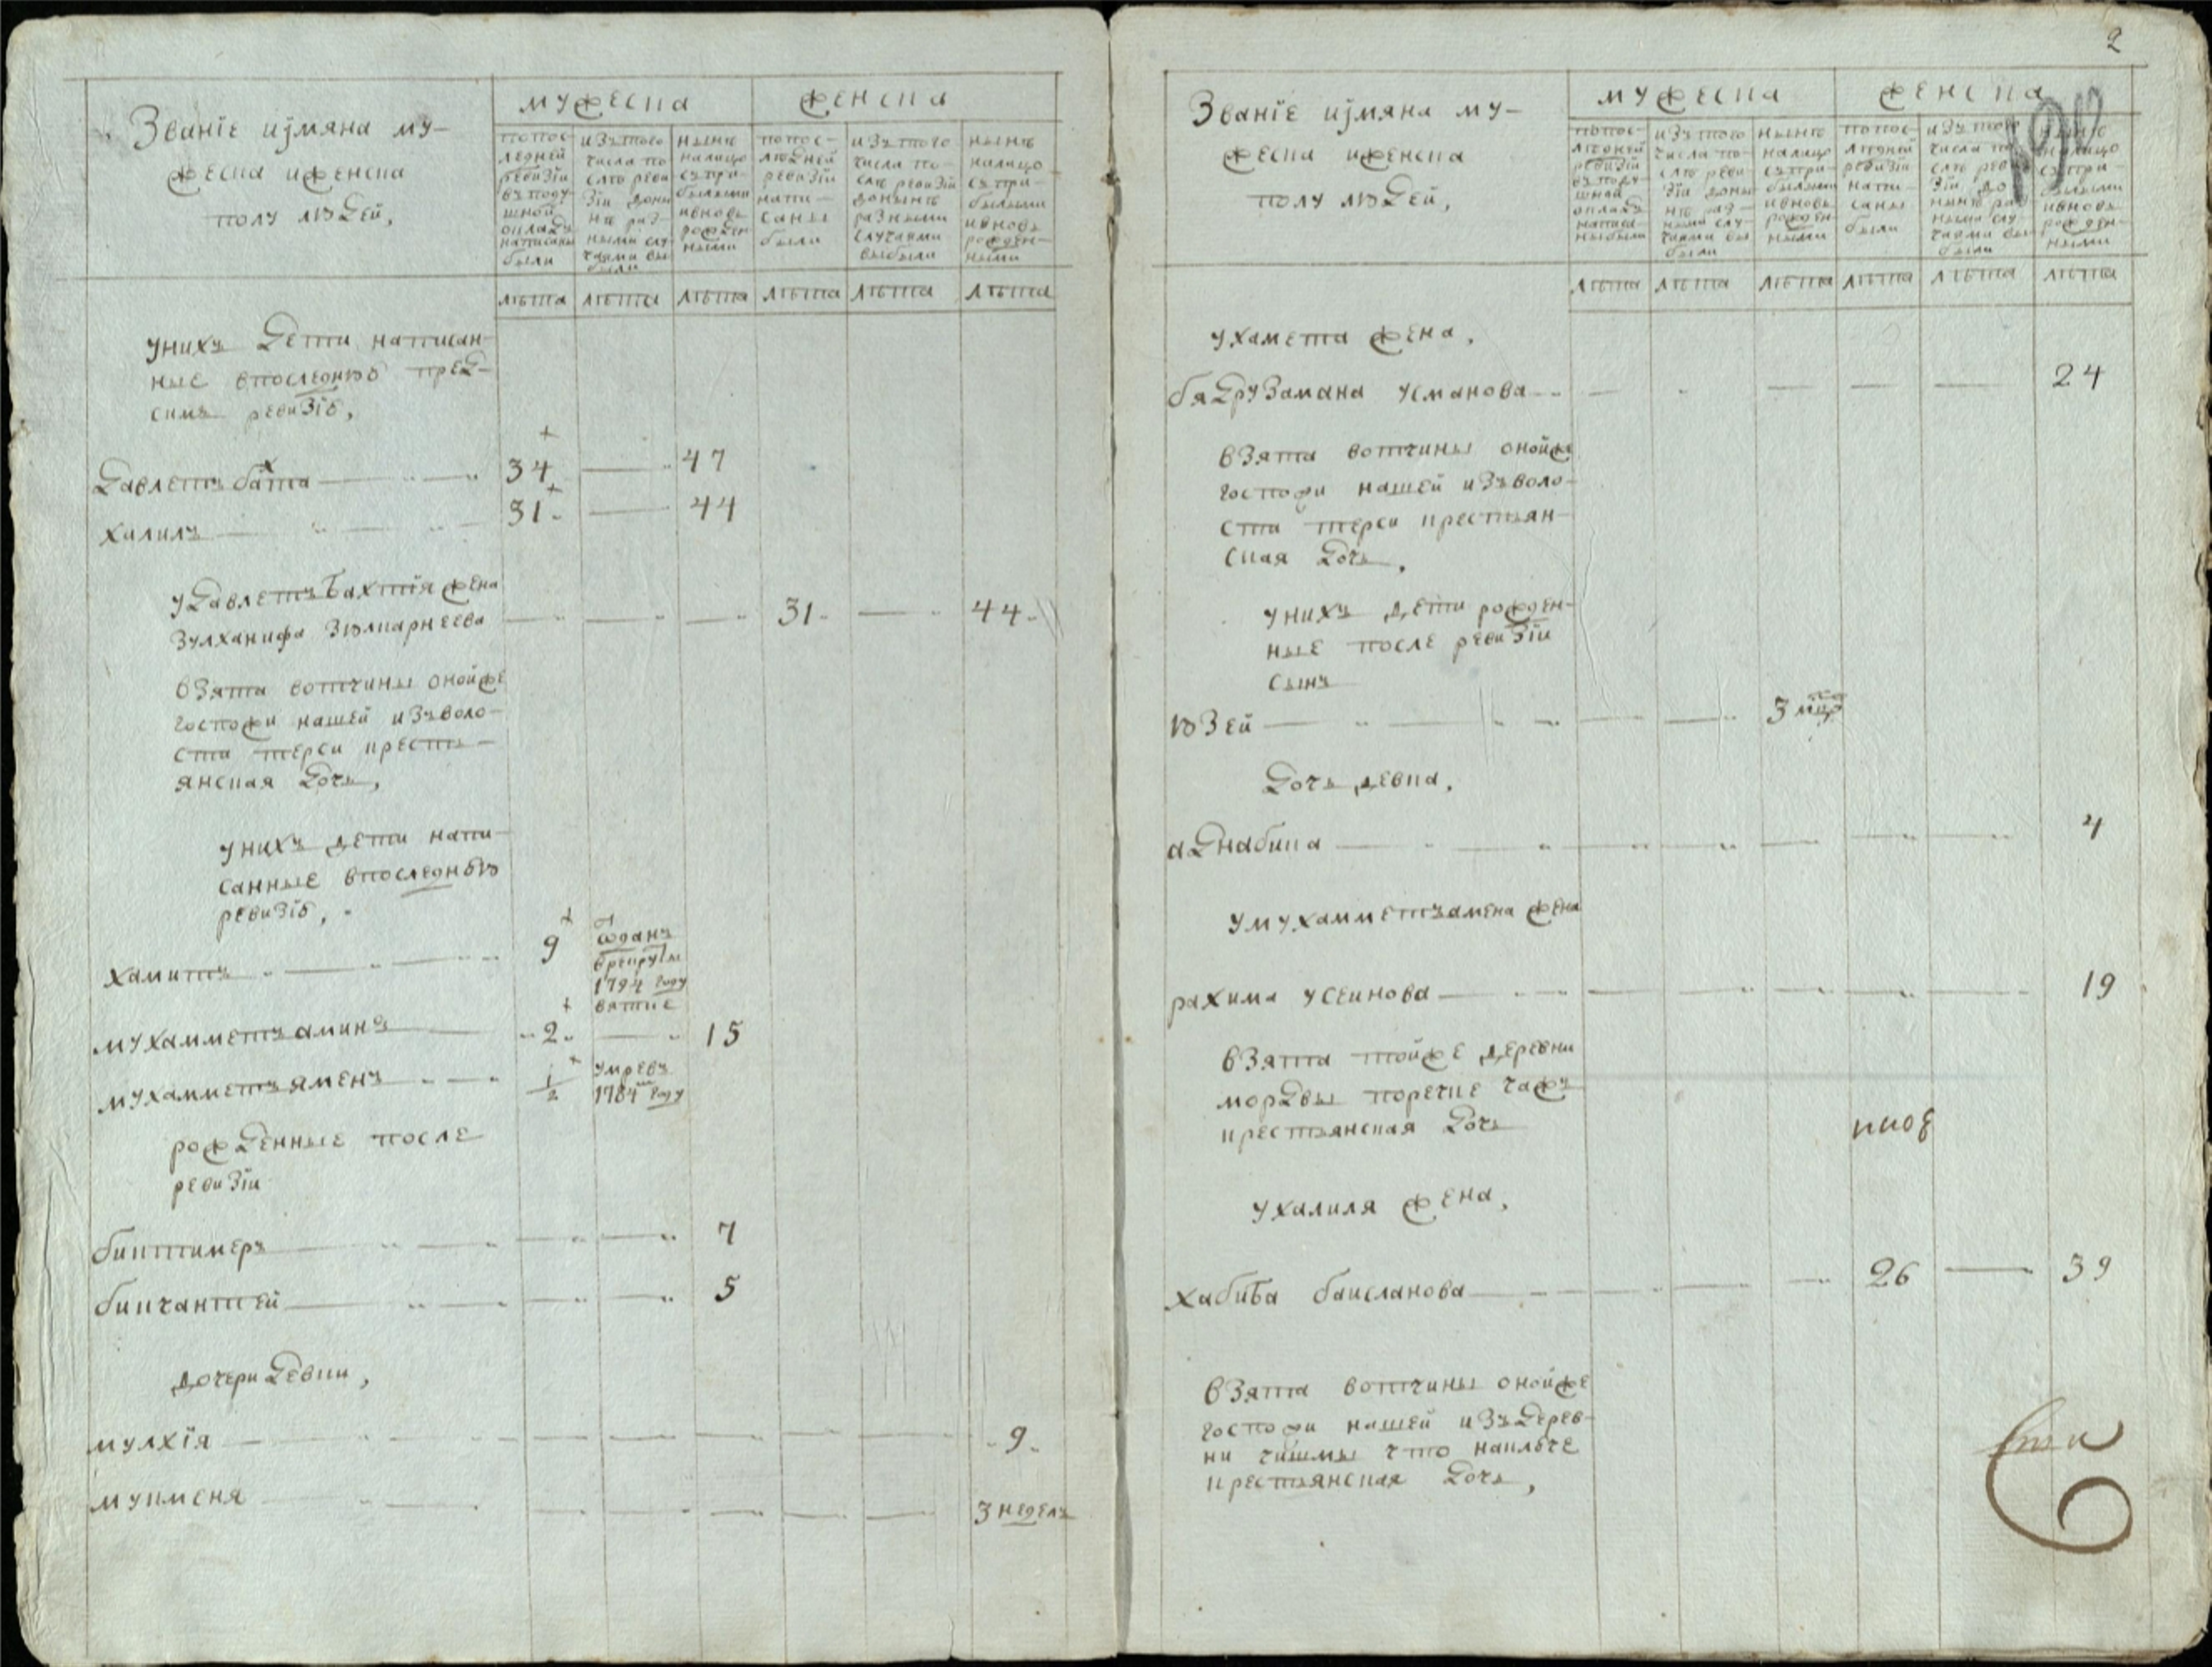 Званїе иjмяна му-
жеска иженска
полу людей,
мужеска
женска
попос-
ледней
ревизїи
въподу
шной
окладъ
написаны
были
изътого
числа по
слѣ реви
зїи доны
нѣ раз-
ными слу
чаями вы
были
нынѣ
налицо
съпри-
былыми
ивновь
рожден
ными
попос-
лѣдней
ревизїи
напи-
саны
были
изътого
числа по-
слѣ ревизїи
донынѣ
разными
случаями
выбыли
нынѣ
налицо
съпри-
былыми
ивновь
рожден-
ными
лѣта лѣта лѣта лѣта лѣта лѣта
унихъ дети написан-
ные впоследнюю пред-
симъ ревизїю,
давлетъ бахта 34 47
халилъ 31 44
удавлетъбахтїя жена
зулханифа зюлкарнеева 31 44
взята вотчины онойже
госпожи нашей изъволо-
сти терси кресть-
янская дочь,
унихъ дети напи-
санные впоследнюю
ревизїю,
хамитъ 9 отданъ
врекруты
1794 году
вятке
мухамметъаминъ 2 15
мухамметъяменъ 1/2 умревъ
1784 году
рожденные после
ревизїи
биктимеръ 7
бикчантей 5
дочери девки,
мулхїя 9
мукменя 3 недель
2
Званїе иjмяна му-
жеска иженска
полу людей,
мужеска
женска
попос-
лѣдней
ревизїи
въподу-
шной
окладъ
написа-
ныбыли
изътого
числа по-
слѣ реви-
зїи доны
нѣ раз-
ными слу-
чаями вы
были
нынѣ
налицо
съпри-
былыми
ивновь
рожден-
ными
попос-
лѣдней
ревизїи
напи-
саны
были
изътого
числа по
слѣ реви
зїи до
нынѣ раз
ными слу-
чаями вы
были
нынѣ
налицо
съпри-
былыми
ивновь
рожден-
ными
лѣта лѣта лѣта лѣта лѣта лѣта
ухамета жена,
бядрузамана усманова 24
взята вотчины онойже
госпожи нашей изъволо-
сти терси крестьян-
ская дочь,
унихъ дети рожден-
ные после ревизїи
сынъ
юзей 3
дочь девка,
аднабика 4
умухамметъамена жена
рахима усеинова 19
взята тойже деревни
мордвы поречке чажъ
крестьянская дочь
ухалиля жена,
хабиба баисланова 26 39
взята вотчины онойже
госпожи нашей издерев-
ни чишмы что наилече
крестьянская дочь,